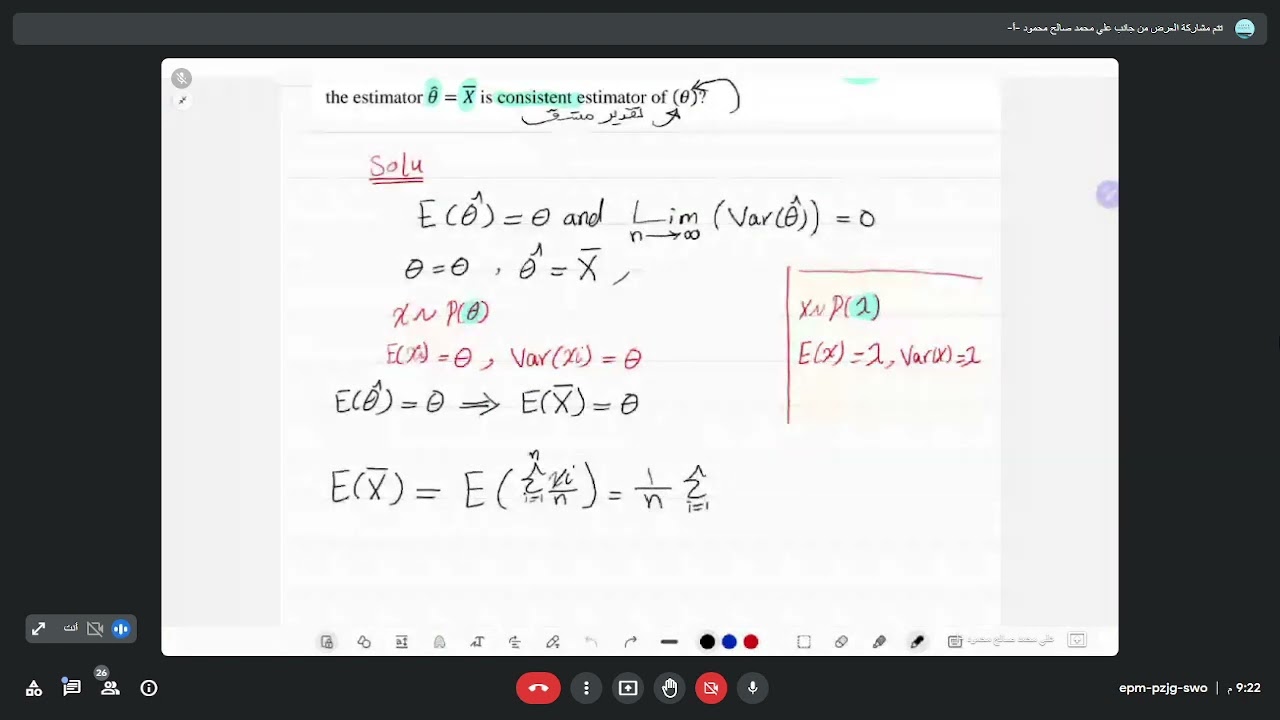 تتم مشاركة العرض من جانب علي محمد صالح محمود -أ-
the estimator θ̂ = X̄ is consistent estimator of (θ)?
تقدير متسق
Solu
E(θ̂) = θ and Lim n→∞ (Var(θ̂)) = 0
θ = θ , θ̂ = X̄ ,
x ~ P(θ)
E(xi) = θ , Var(xi) = θ
x ~ P(λ)
E(x) = λ, Var(x) = λ
E(θ̂) = θ ⟹ E(X̄) = θ
E(X̄) = E(∑ⁿᵢ₌₁ xi/n) = 1/n ∑ᵢ₌₁
أنت
علي محمد صالح محمود
26
epm-pzjg-swo | 9:22 م